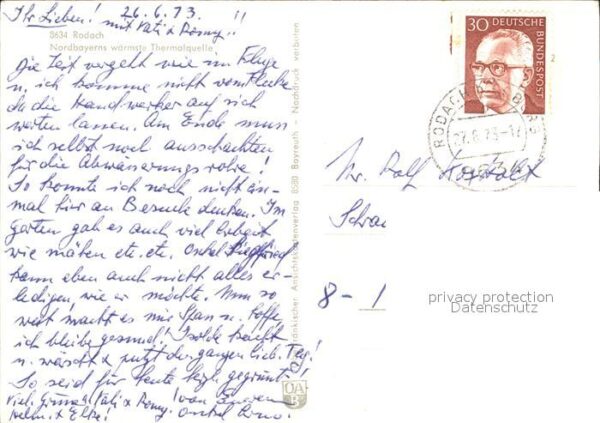 Ihr Lieben! 26.6.73. !!
mit Kati & Romy!
8634 Rodach
Nordbayerns wärmste Thermalquelle
Die Zeit vergeht wie im Fluge
u. ich komme nicht vom Flecke
da die Handwerker auf sich
warten lassen. Am Ende muss
ich selbst noch ausschachten
für die Abwässerungsrohre!
So konnte ich noch nicht ein-
mal hier an Besuche denken. Im
Garten gab es auch viel Arbeit
wie mähen etc. etc. Onkel Siegfried
kann eben auch nicht alles er-
ledigen, wie er möchte. Nun so
weit macht es mir Spass u. hoffe
ich bleibe gesund! Isolde kauft
u. wäscht & putzt den ganzen lieb. Tag!
So seid für heute herzl. gegrüsst!
Viel. Grüsse Kati & Romy! von
Helm. & Elke! Onkel
Fränkischer Ansichtskartenverlag 8580 Bayreuth · Nachdruck verboten
OAB
30 DEUTSCHE BUNDESPOST
2
RODACH B
27.6.73-17
8634
Hr. Rolf
8-1
privacy protection
Datenschutz